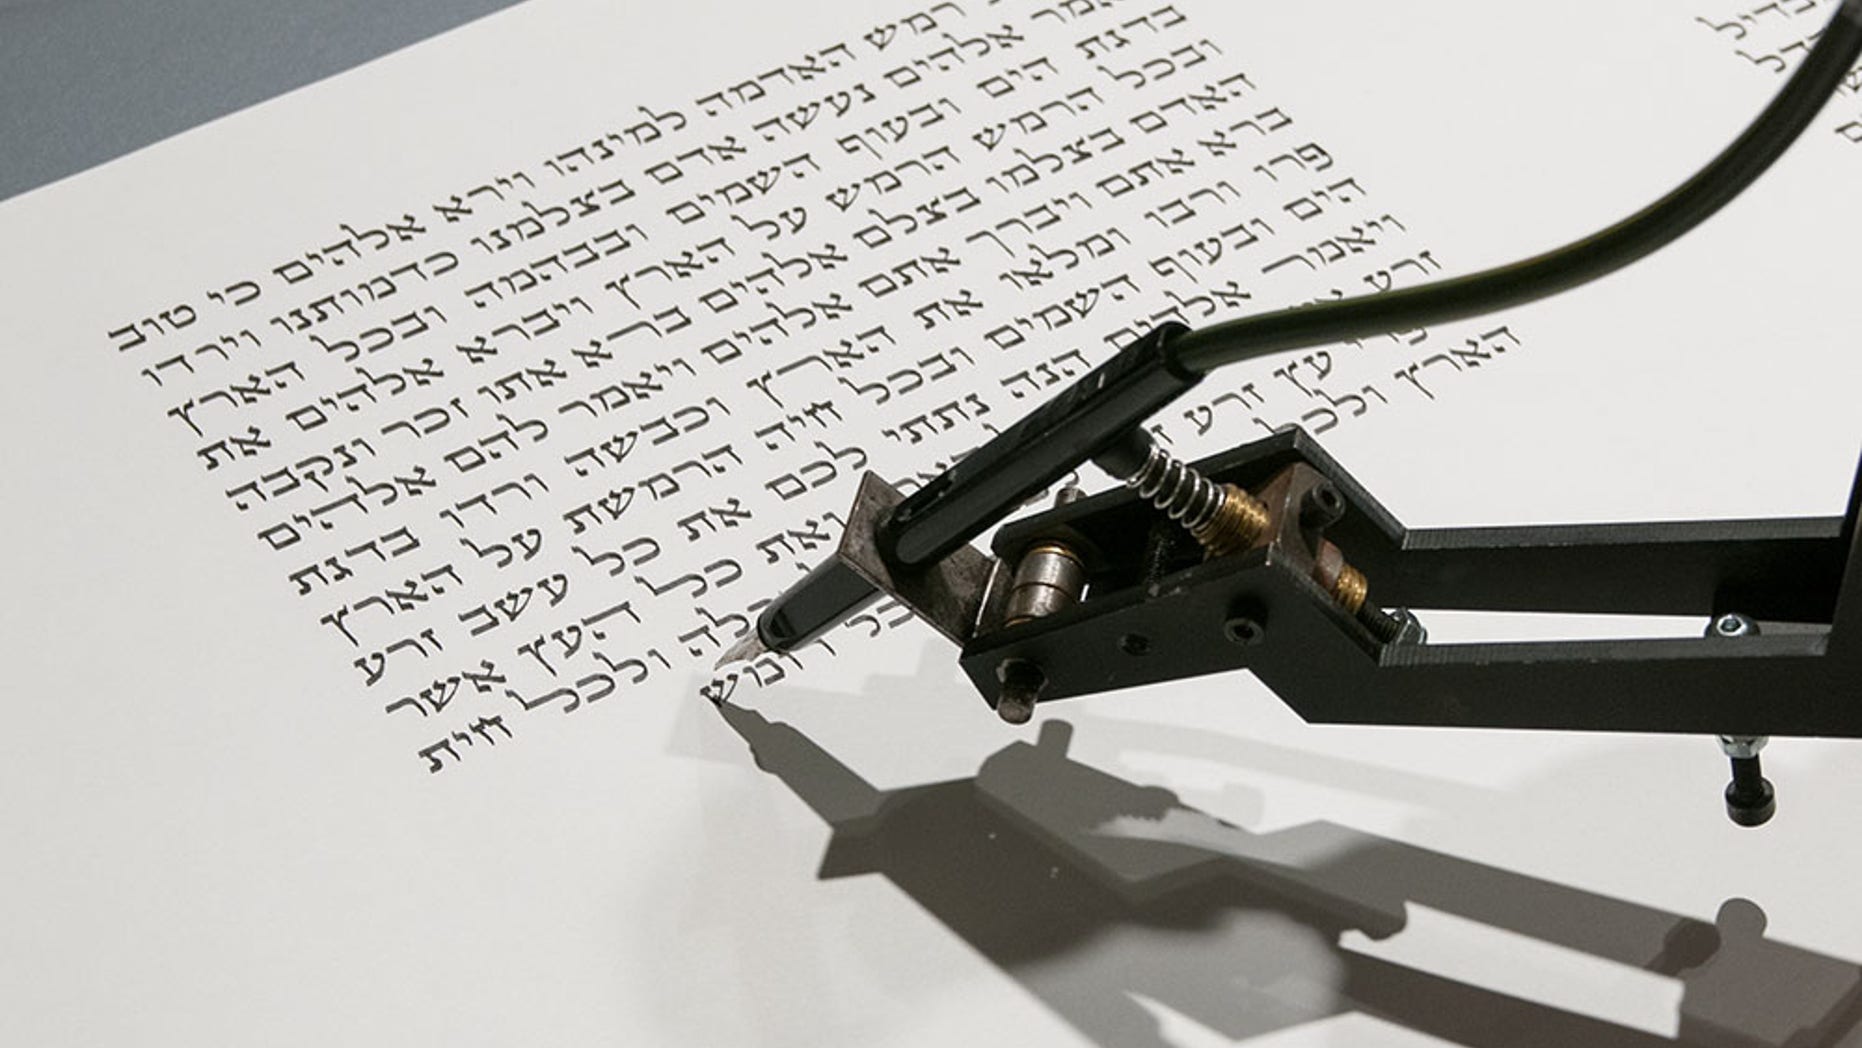 רמש האדמה למינהו וירא אלהים כי טוב
אלהים נעשה אדם בצלמנו כדמותנו וירדו
בדגת הים ובעוף השמים ובבהמה ובכל הארץ
ובכל הרמש הרמש על הארץ ויברא אלהים את
האדם בצלמו בצלם אלהים ברא אתו זכר ונקבה
ברא אתם ויברך אתם אלהים ויאמר להם אלהים
פרו ורבו ומלאו את הארץ וכבשה ורדו בדגת
הים ובעוף השמים ובכל חיה הרמשת על הארץ
ויאמר אלהים הנה נתתי לכם את כל עשב זרע
זרע ואת כל העץ אשר
עץ זרע ולכל חית
הארץ ולכל רומש